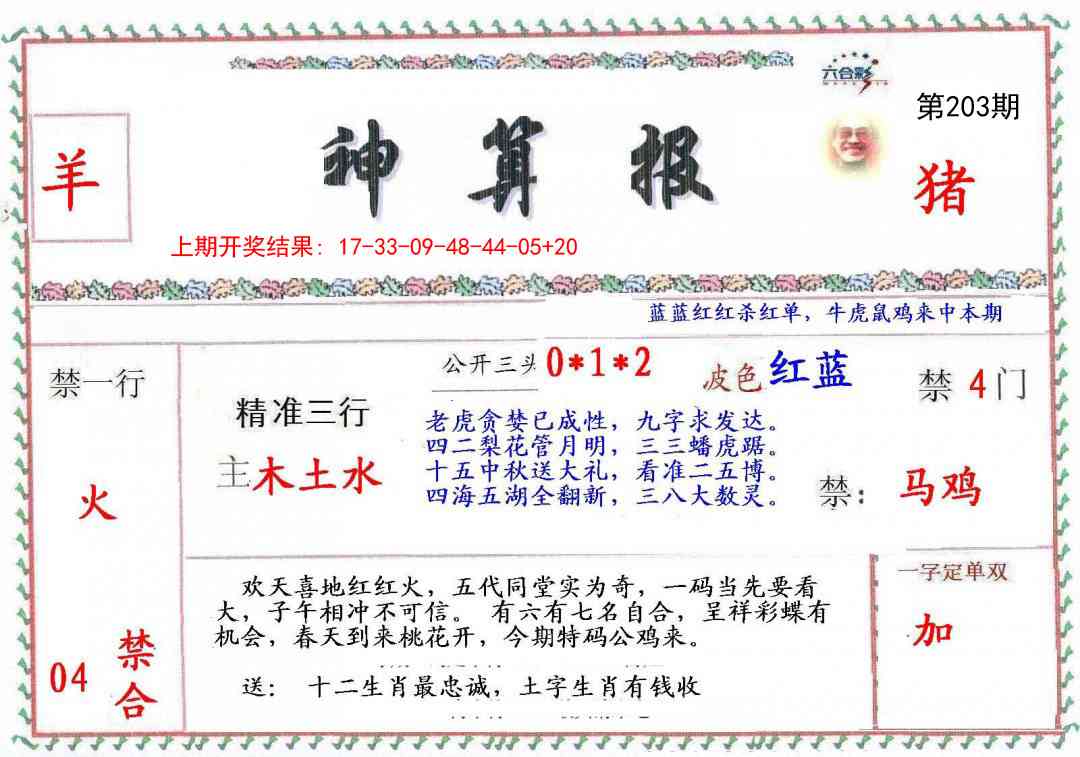 六合彩
第203期
羊
神算报
猪
上期开奖结果：17-33-09-48-44-05+20
蓝蓝红红杀红单，牛虎鼠鸡来中本期
禁一行
公开三头 0*1*2
波色 红蓝
禁 4 门
精准三行
老虎贪婪已成性，九字求发达。
四二梨花管月明，三三蟠虎踞。
十五中秋送大礼，看准二五博。
四海五湖全翻新，三八大数灵。
主木土水
火
禁：马鸡
欢天喜地红红火，五代同堂实为奇，一码当先要看
大，子午相冲不可信。 有六有七名自合，呈祥彩蝶有
机会，春天到来桃花开，今期特码公鸡来。
送： 十二生肖最忠诚，土字生肖有钱收
一字定单双
加
04
禁合